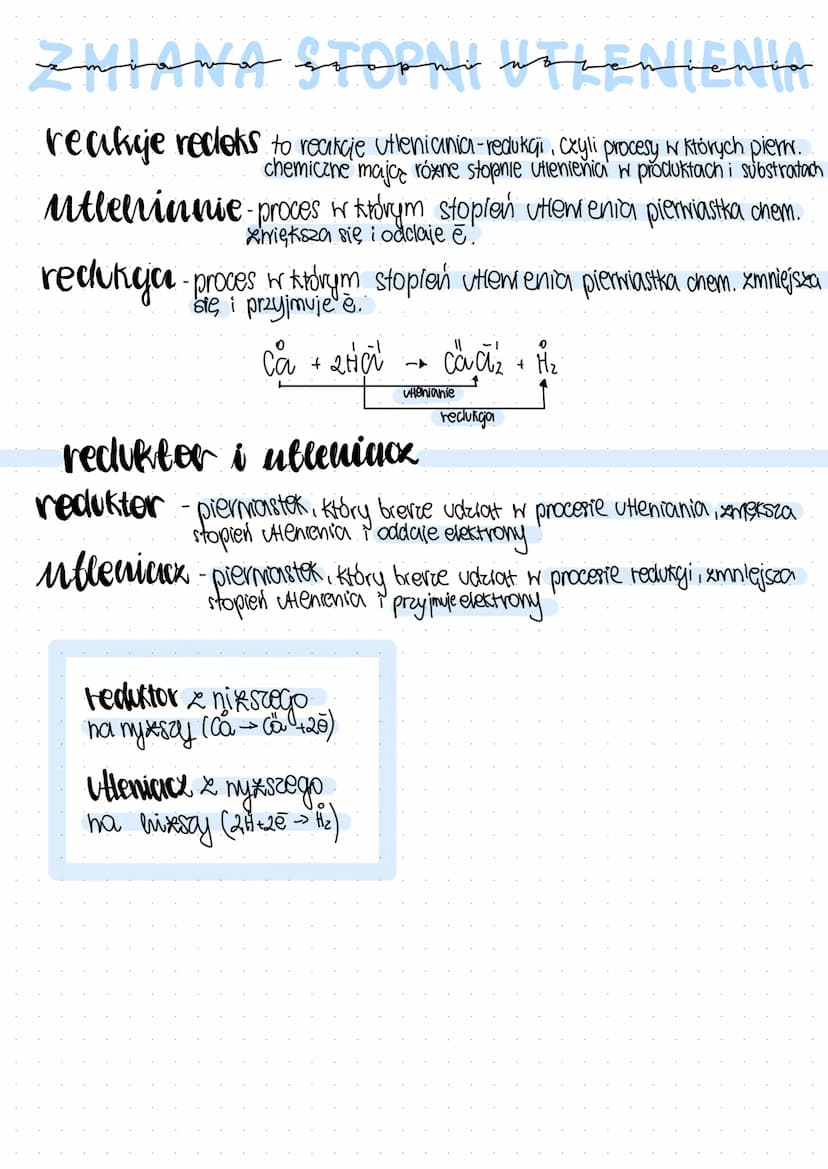 ZMIANA STOPNI UTLENIENIA
zmiana stopni utlenienia
reakcje redoks to reakcje utleniania-redukcji, czyli procesy w których pierw.
chemiczne mają różne stopnie utlenienia w produktach i substratach
utlenianie - proces w którym stopień utlenienia pierwiastka chem.
zwiększa się i oddaje ē.
redukcja - proces w którym stopień utlenienia pierwiastka chem. zmniejsza
się i przyjmuje ē.
0 I -I II -I 0
Ca + 2HCl → CaCl₂ + H₂
utlenianie
redukcja
reduktor i utleniacz
reduktor - pierwiastek, który bierze udział w procesie utleniania, zwiększa
stopień utlenienia i oddaje elektrony
utleniacz - pierwiastek, który bierze udział w procesie redukcji, zmniejsza
stopień utlenienia i przyjmuje elektrony
reduktor z niższego
na wyższy (Ca⁰ → Caᴵᴵ + 2ē)
utleniacz z wyższego
na niższy (2Hᴵ + 2ē → H₂⁰)